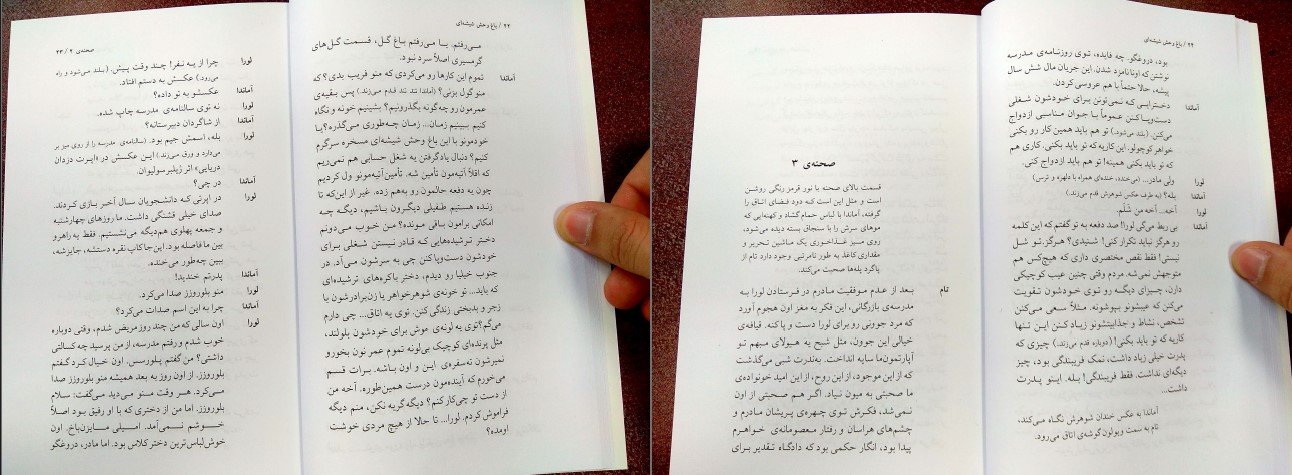 ۲۲ / باغ وحش شیشه‌ای
می‌رفتم. یا می‌رفتم باغ گل، قسمت گل‌های
گرمسیری اصلاً سرد نبود.
آماندا تموم این کارها رو می‌کردی که منو فریب بدی؟ که
منو گول بزنی؟ (آماندا تند تند قدم می‌زند) پس بقیه‌ی
عمرمون رو چه‌گونه بگذرونیم؟ بشینیم خونه و نگاه
کنیم ببینیم زمان... زمان چه‌طوری می‌گذره؟ یا
خودمونو با این باغ وحش شیشه‌ای مسخره سرگرم
کنیم؟ دنبال یادگرفتن یه شغل حسابی هم نمی‌ریم
که اقلاً آتیه‌مون تأمین شه. تأمین آتیه‌مونو ول کردیم
چون یه دفعه حالمون رو به‌هم زده. غیر از این‌که تا
زنده هستیم طفیلی دیگرون باشیم، دیگه چه
امکانی برامون باقی مونده؟ من خوب می‌دونم
دختر ترشیده‌هایی که قادر نیستن شغلی برای
خودشون دست‌وپاکنن چی به سرشون می‌آد. در
جنوب خیلیا رو دیدم، دختر باکره‌های ترشیده‌ای
که باید... تو خونه‌ی شوهرخواهر یا زن‌برادرشون با
زجر و بدبختی زندگی کنن. توی یه اتاق... چی دارم
می‌گم؟ توی یه لونه‌ی موش برای خودشون بلولند،
مثل پرنده‌ای کوچیک بی‌لونه تموم عمر نون بخورو
نمیرشون ته‌سفره‌ی این و اون باشه. برات قسم
می‌خورم که آینده‌مون درست همین‌طوره. آخه من
از دست تو چی‌کار کنم؟ دیگه گریه نکن، منم دیگه
فراموش کردم. لورا... تا حالا از هیچ مردی خوشت
اومده؟
صحنه‌ی ۲ / ۲۳
لورا چرا از یه نفر! چند وقت پیش. (بلند می‌شود و راه
می‌رود) عکسش به دستم افتاد.
آماندا عکسشو به تو داده؟
لورا نه توی سالنامه‌ی مدرسه چاپ شده.
آماندا از شاگردان دبیرستانه؟
لورا بله، اسمش جیم بود. (سالنامه‌ی مدرسه را از روی میز بر
می‌دارد و ورق می‌زند) این عکسش در «اپرت دزدان
دریایی» اثر ژیلبرسولیوان
آماندا در چی؟
لورا در اپرتی که دانشجویان سال آخیر بازی کردند.
صدای خیلی قشنگی داشت. ما روزهای چهارشنبه
و جمعه پهلوی هم‌دیگه می‌نشستیم. فقط یه راهرو
بین ما فاصله بود. این‌جا کاپ نقره دستشه، جایزشه،
ببین چه‌طور می‌خنده.
آماندا پدرتم خندید!
لورا منو بلوروزز صدا می‌کرد.
آماندا چرا به این اسم صدات می‌کرد؟
لورا اون سالی که من چند روز مریض شدم، وقتی دوباره
خوب شدم و رفتم مدرسه، از من پرسید چه کسالتی
داشتی؟ من گفتم پلورسس. اون خیال کرد گفتم
بلوروزز. از اون روز به بعد همیشه منو بلوروزز صدا
می‌کرد. هر وقت منو می‌دید می‌گفت: سلام
بلوروزز. اما من از دختری که با او رفیق بود اصلاً
خوشم نمی‌آمد. امیلی مایزن‌باخ. اون
خوش‌لباس‌ترین دختر کلاس بود. اما مادر، دروغگو
۲۴ / باغ وحش شیشه‌ای
بود، دروغگو. چه فایده، توی روزنامه‌ی مدرسه
نوشتن که اونا نامزد شدن. این جریان مال شش سال
پیشه، حالا حتماً با هم عروسی کردن.
آماندا دخترایی که نمی‌تونن برای خودشون شغلی
دست‌وپاکنن عموماً با جوان مناسبی ازدواج
می‌کنن. (بلند می‌شود.) تو هم باید همین کار رو بکنی
خواهر کوچولو. این کاریه که تو باید بکنی. کاری هم
که تو باید بکنی همینه! تو هم باید ازدواج کنی.
لورا ولی مادر... (می‌خندد، خنده‌ای همراه با دلهره و ترس)
آماندا بله؟ (به طرف عکس شوهرش قدم می‌زند)
لورا آخه... آخه من شلم.
آماندا بی ربط می‌گی لورا! صد دفعه به تو گفتم که این کلمه
رو هرگز نباید تکرار کنی! شنیدی؟ هرگز. تو شل
نیستی! فقط نقص مختصری داری که هیچ‌کس هم
متوجهش نمی‌شه. مردم وقتی چنین عیب کوچیکی
دارن، چیزای دیگه رو توی خودشون تقویت
می‌کنن که عیبشونو بپوشونه. مثلاً سعی می‌کنن
تشخص، نشاط و جذابیتشونو زیاد کنن. این تنها
کاریه که تو باید بکنی! (دوباره قدم می‌زند) چیزی که
پدرت خیلی زیاد داشت، نمک فریبندگی بود، چیز
دیگه‌ای نداشت. فقط فریبندگی! بله. اینو پدرت
داشت...
آماندا به عکس خندان شوهرش نگاه می‌کند.
تام به سمت ویولون گوشه‌ی اتاق می‌رود.
صحنه‌ی ۳
قسمت بالای صحنه با نور قرمز رنگی روشن
است و مثل این است که دود فضای اتاق را
گرفته، آماندا با لباس حمام گشاد و کهنه‌ایی که
موهای سرش را با سنجاق بسته دیده می‌شود،
روی میز غذاخوری یک ماشین تحریر و
مقداری کاغذ به طور نامرتبی وجود دارد تام از
پاگرد پله‌ها صحبت می‌کند.
تام بعد از عدم موفقیت مادرم در فرستادن لورا به
مدرسه‌ی بازرگانی، این فکر به مغز اون هجوم آورد
که مرد جوونی رو برای لورا دست و پا کنه. قیافه‌ی
خیالی این جوون، مثل شبح یه هیولای مبهم تو
آپارتمون‌ما سایه انداخت. به‌ندرت شبی می‌گذشت
که از این موجود، از این روح، از این امید خونواده‌ی
ما صحبتی به میون نیاد. اگر هم صحبتی از اون
نمی‌شد، فکرش توی چهره‌ی پریشان مادرم و
چشم‌های هراسان و رفتار معصومانه‌ی خواهرم
پیدا بود، انگار حکمی بود که دادگاه تقدیر برای